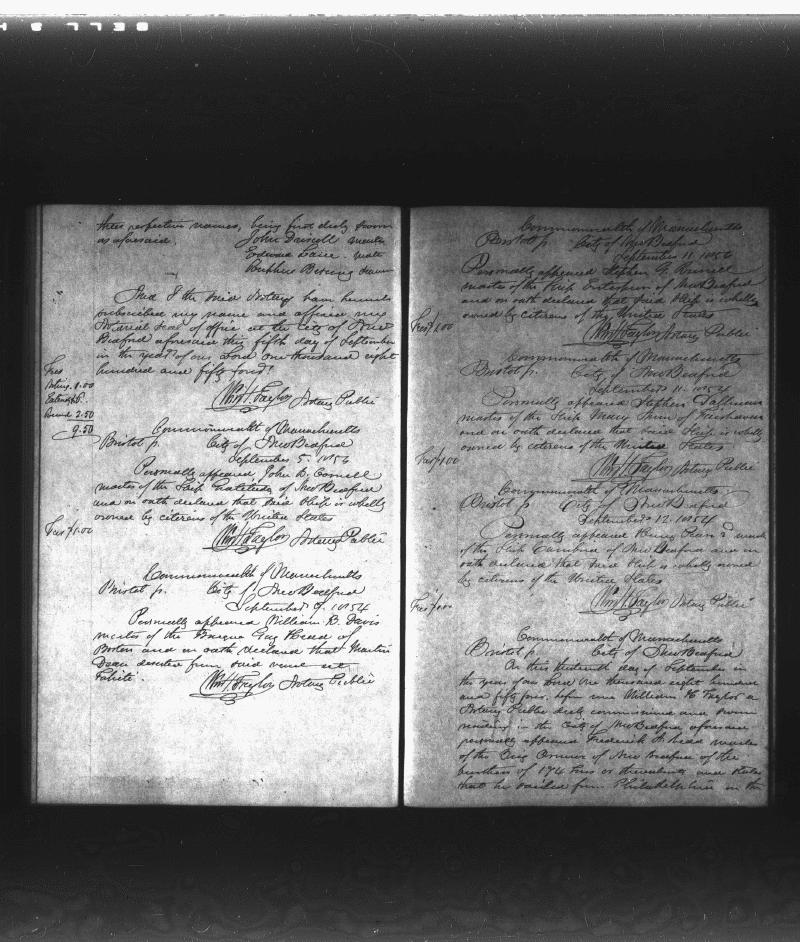 their respective names, being first duly sworn
as aforesaid. John Driscoll master
Edward Lane mate
seaman
And I the said Notary have hereunto
subscribed my name and affixed my
Notarial Seal of office at the City of New
Bedford aforesaid this fifth day of September
in the year of our Lord one thousand eight
hundred and fifty four.
Wm H. Taylor Notary Public
Fees
Noting 1.00
2.50
9.50
Commonwealth of Massachusetts
Bristol ss. City of New Bedford
September 5. 1854
Personally appeared John B. Cornell
master of the Ship Gratitude of New Bedford
and on oath declared that said Ship is wholly
owned by citizens of the United States
Fees $1.00
Wm H. Taylor Notary Public
Commonwealth of Massachusetts
Bristol ss. City of New Bedford
September 9. 1854
Personally appeared William B. Davis
master of the Barque Gay Head of
Boston and on oath declared that Martin
Dean deserted from said vessel at
Tahiti.
Wm H. Taylor Notary Public
Commonwealth of Massachusetts
Bristol ss. City of New Bedford
September 11 1854
Personally appeared Stephen G. Russell
master of the Ship Enterprise of New Bedford
and on oath declared that said Ship is wholly
owned by citizens of the United States
Fees $1.00
Wm H. Taylor Notary Public
Commonwealth of Massachusetts
Bristol ss. City of New Bedford
September 11. 1854
Personally appeared Stephen
master of the Ship Mary Ann of Fairhaven
and on oath declared that said Ship is wholly
owned by citizens of the United States
Fees $1.00
Wm H. Taylor Notary Public
Commonwealth of Massachusetts
Bristol ss City of New Bedford
September 12. 1854
Personally appeared Henry Pease 2d master
of the Ship Cambria of New Bedford and on
oath declared that said Ship is wholly owned
by citizens of the United States
Fees $1.00
Wm H. Taylor Notary Public
Commonwealth of Massachusetts
Bristol ss. City of New Bedford
On this thirteenth day of September in
the year of our Lord one thousand eight hundred
and fifty four, before me William H. Taylor a
Notary Public duly commissioned and sworn
residing in the City of New Bedford aforesaid
personally appeared Frederick A. master
of the Brig of New Bedford of the
burthen of 174 tons or thereabouts and states
that he sailed from Philadelphia in the